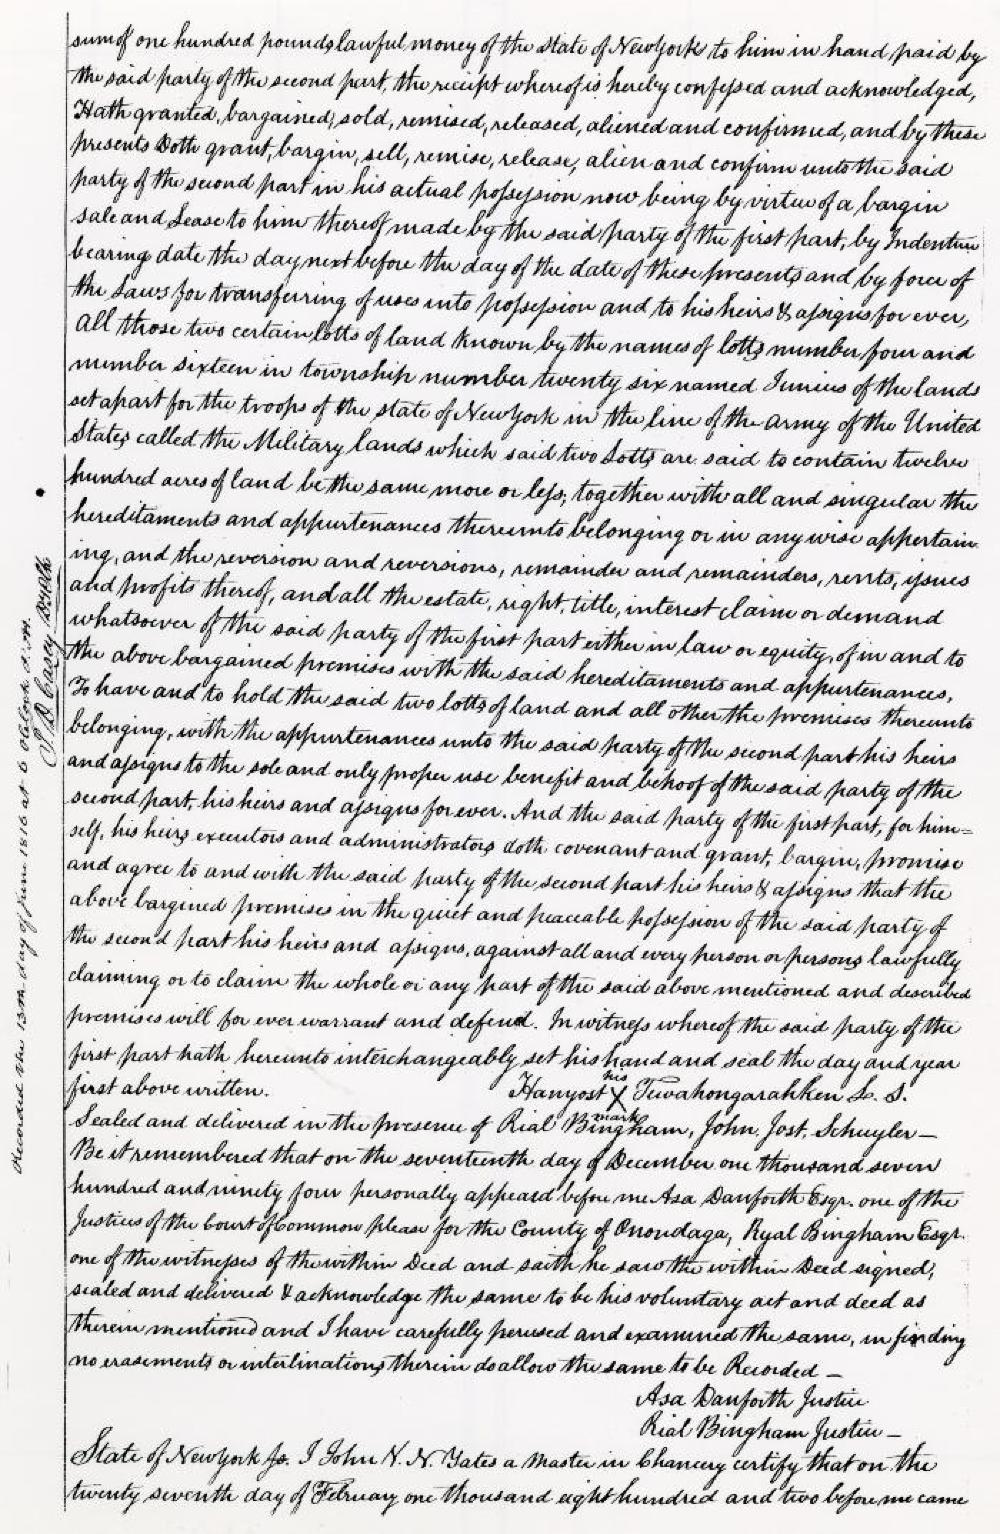 sum of one hundred pounds lawful money of the State of New York to him in hand paid by
the said party of the second part, the receipt whereof is hereby confessed and acknowledged,
Hath granted, bargained, sold, remised, released, aliened and confirmed, and by these
presents Doth grant, bargin, sell, remise, release, alien and confirm unto the said
party of the second part in his actual possession now being by virtue of a bargin
sale and Lease to him thereof made by the said party of the first part, by Indenture
bearing date the day next before the day of the date of these presents and by force of
the Laws for transferring of uses into possession and to his heirs & assigns for ever,
All those two certain lotts of land known by the names of lotts number four and
number sixteen in township number twenty six named Junius of the lands
set apart for the troops of the state of New York in the line of the army of the United
States called the Military lands which said two Lotts are said to contain twelve
hundred acres of land be the same more or less, together with all and singular the
hereditaments and appurtenances thereunto belonging or in any wise appertain
ing, and the reversion and reversions, remainder and remainders, rents, issues
and profits thereof, and all the estate, right, title, interest claim or demand
whatsoever of the said party of the first part either in law or equity, of in and to
the above bargained premises with the said hereditaments and appurtenances,
To have and to hold the said two lotts of land and all other the premises thereunto
belonging, with the appurtenances unto the said party of the second part his heirs
and assigns to the sole and only proper use benefit and behoof of the said party of the
second part, his heirs and assigns for ever. And the said party of the first part, for him=
self, his heirs executors and administrators doth covenant and grant, bargin, promise
and agree to and with the said party of the second part his heirs & assigns that the
above bargined premises in the quiet and peaceable possession of the said party of
the second part his heirs and assigns, against all and every person or persons lawfully
claiming or to claim the whole or any part of the said above mentioned and described
premises will for ever warrant and defend. In witness whereof the said party of the
first part hath hereunto interchangeably set his hand and seal the day and year
first above written. Hanyost his X mark Tewahongarahken L. S.
Sealed and delivered in the presence of Rial Bingham, John Jost, Schuyler—
Be it remembered that on the seventeenth day of December one thousand seven
hundred and ninety four personally appeard before me Asa Danforth Esqr. one of the
Justices of the Court of Common please for the County of Onondaga, Ryal Bingham Esqr.
one of the witnesses of the within Deed and saith he saw the within Deed signed,
sealed and delivered & acknowledge the same to be his voluntary act and deed as
therein mentioned and I have carefully perused and examined the same, in finding
no erasements or interlinations therein do allow the same to be Recorded—
Asa Danforth Justice
Rial Bingham Justice—
State of New York Ss. I John V. N. Yates a Master in Chancery certify that on the
twenty seventh day of February one thousand eight hundred and two before me came
Recorded the 13th. day of June 1816 at 6 Oclock P.M.